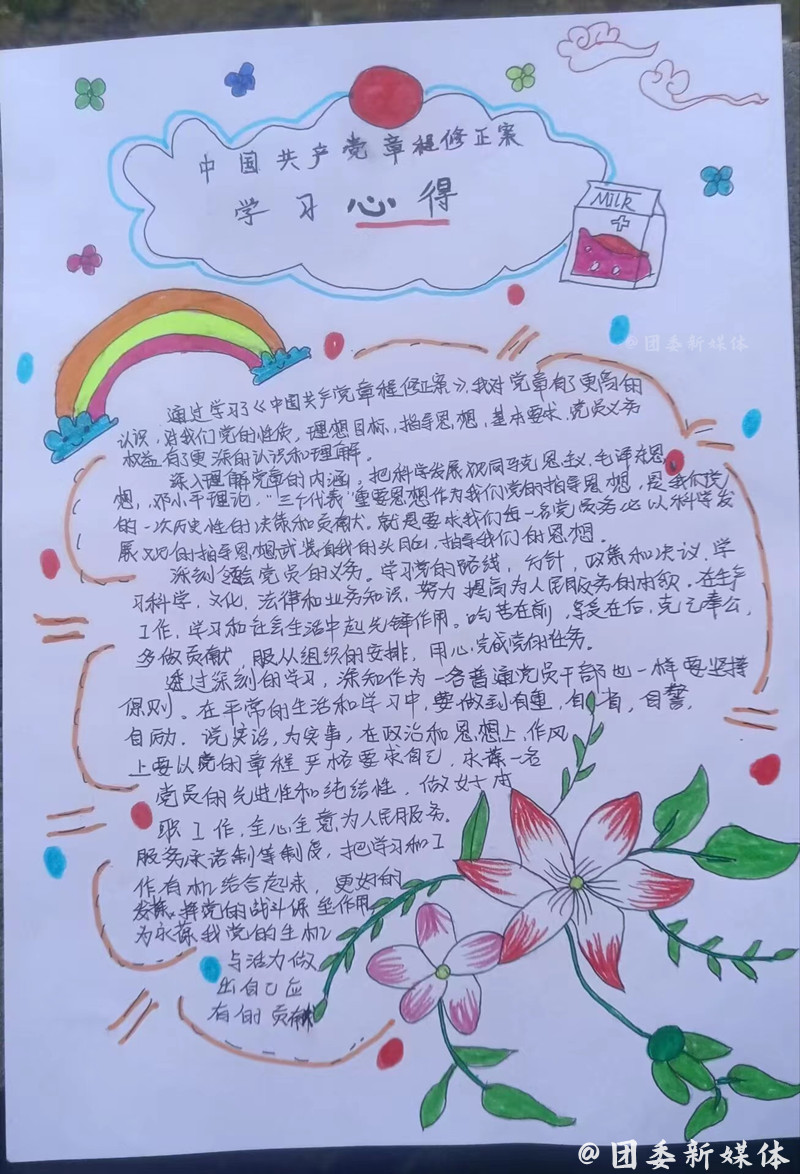 中国共产党章程修正案
学习心得
MilK
@团委新媒体
通过学习了《中国共产党章程修正案》,我对党章有了更高的
认识,对我们党的性质,理想目标,指导思想,基本要求,党员义务
权益有了更深的认识和理解。
深入理解党章的内涵,把科学发展观同马克思主义,毛泽东思
想,邓小平理论,"三个代表"重要思想作为我们党的指导思想,是我们党
的一次历史性的决策和贡献。就是要求我们每一名党员务必以科学发
展观的指导思想武装自我的头脑,指导我们的思想。
深刻领会党员的义务。学习党的路线,方针,政策和决议,学
习科学,文化,法律和业务知识,努力提高为人民服务的本领,在生产
工作,学习和社会生活中起先锋作用。吃苦在前,享受在后,克己奉公,
多做贡献,服从组织的安排,用心完成党的任务。
透过深刻的学习,深知作为一名普通党员干部也一样要坚持
原则。在平常的生活和学习中,要做到自重,自省,自警,
自励.说实话,为实事,在政治和思想上,作风
上要以党的章程严格要求自己,永葆一名
党员的先进性和纯结性,做好本
职工作,全心全意为人民服务。
服务承诺制等制度,把学习和工
作有机结合起来,更好的
发挥党的战斗保垒作用
为永葆我党的生机
与活力做
出自己应
有的贡献
@团委新媒体